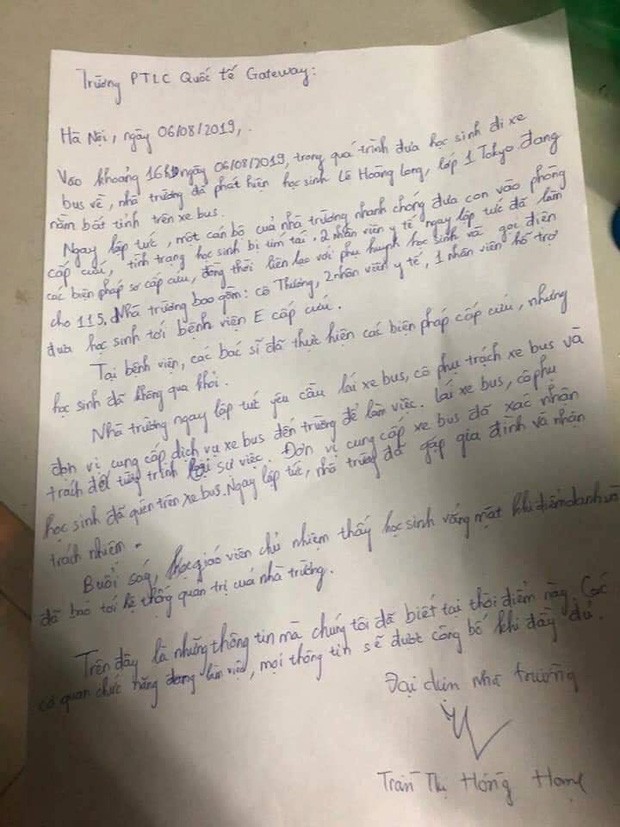 Trường PTLC Quốc tế Gateway:
Hà Nội, ngày 06/08/2019,
Vào khoảng 16h ngày 06/08/2019, trong quá trình đưa học sinh đi xe
bus về, nhà trường đã phát hiện học sinh Lê Hoàng Long, lớp 1 Tokyo đang
nằm bất tỉnh trên xe bus.
Ngay lập tức, một cán bộ của nhà trường nhanh chóng đưa con vào phòng
cấp cứu, tình trạng học sinh bị tím tái, 2 nhân viên y tế ngay lập tức đã làm
các biện pháp sơ cấp cứu, đồng thời liên lạc với phụ huynh học sinh và gọi điện
cho 115. Nhà trường bao gồm: cô Thương, 2 nhân viên y tế, 1 nhân viên hỗ trợ
đưa học sinh tới bệnh viện E cấp cứu.
Tại bệnh viện, các bác sĩ đã thực hiện các biện pháp cấp cứu, nhưng
học sinh đã không qua khỏi.
Nhà trường ngay lập tức yêu cầu lái xe bus, cô phụ trách xe bus và
đơn vị cung cấp dịch vụ xe bus đến trường để làm việc. Lái xe bus, cô phụ
trách để tường trình sự việc. Đơn vị cung cấp xe bus đã xác nhận
học sinh đã quên trên xe bus. Ngay lập tức, nhà trường đã gặp gia đình và nhận
trách nhiệm.
Buổi sáng, giáo viên chủ nhiệm thấy học sinh vắng mặt khi điểm danh và
đã báo tới hệ thống quản trị của nhà trường.
Trên đây là những thông tin mà chúng tôi đã biết tại thời điểm này. Các
cơ quan chức năng đang làm việc, mọi thông tin sẽ được công bố khi đầy đủ.
Đại diện nhà trường
Trần Thị Hồng Hạnh